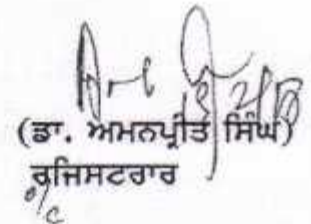 (ਡਾ. ਅਮਨਪ੍ਰੀਤ ਸਿੰਘ)
ਰਜਿਸਟਰਾਰ
o/c